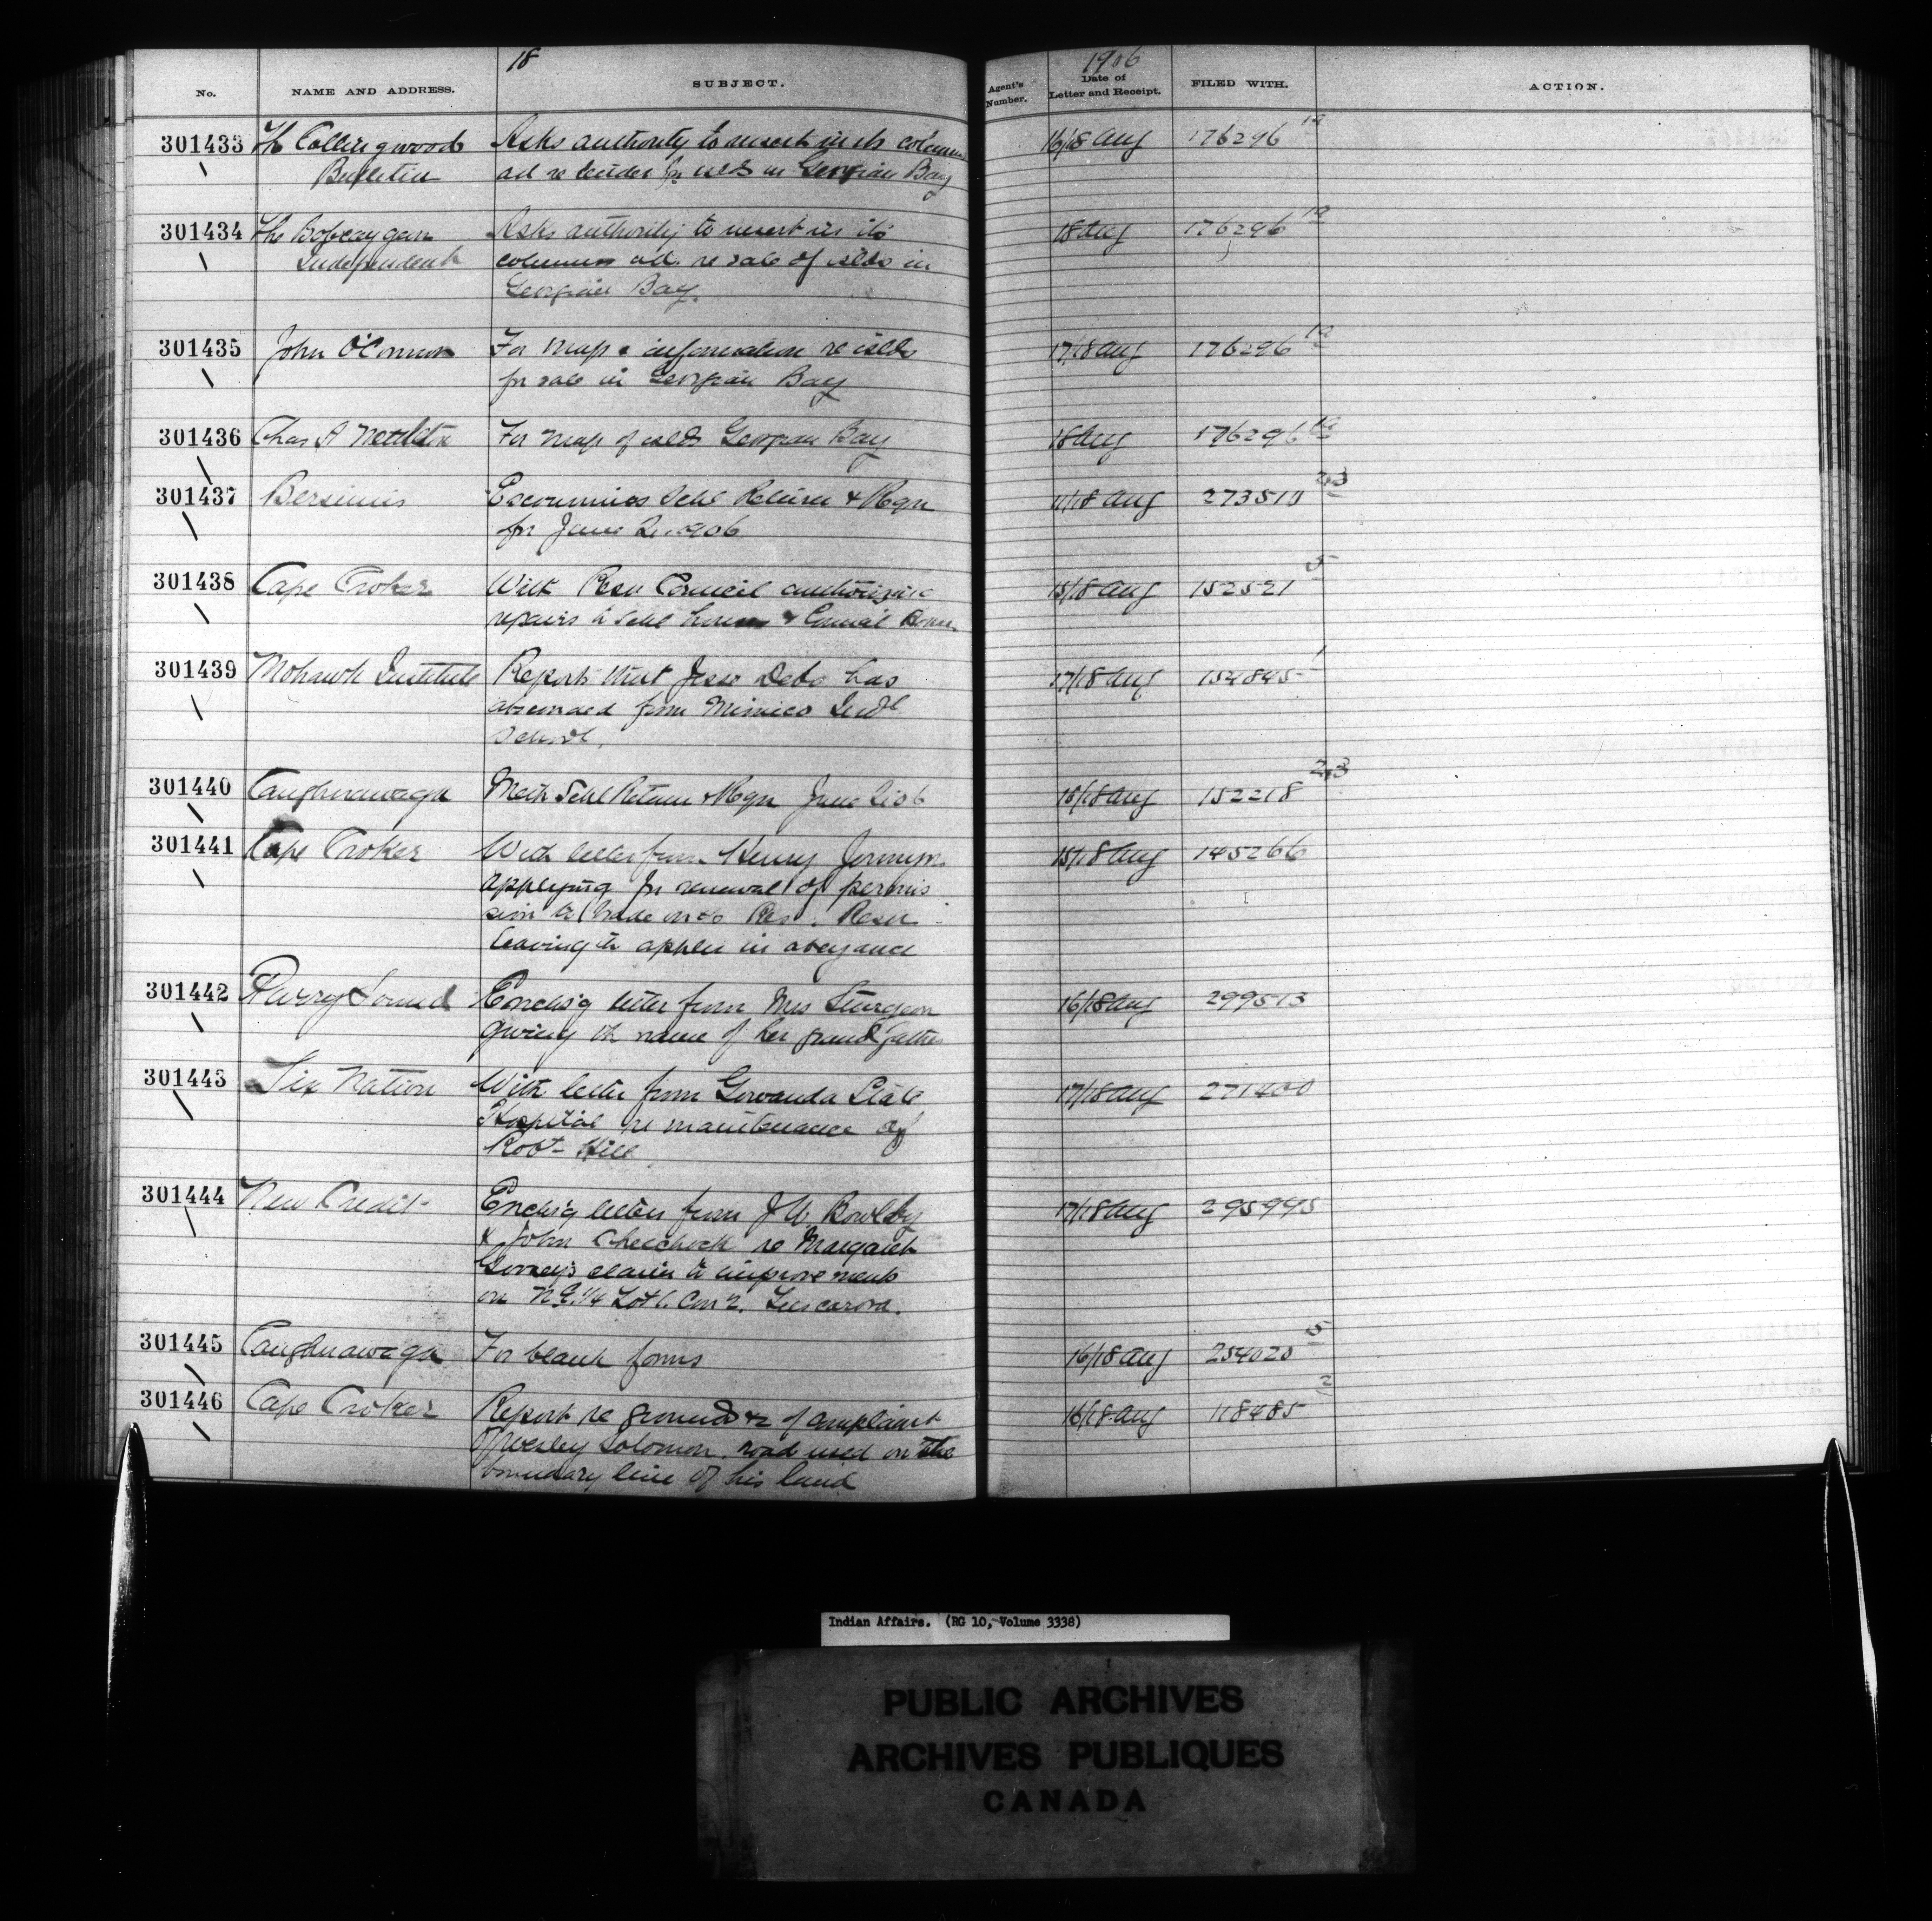 18
1906
No. NAME AND ADDRESS. SUBJECT. Agent's Number. Date of Letter and Receipt. FILED WITH. ACTION.
301433 The Collingwood Asks authority to insert in its columns 16/18 Aug 176296 1a
Bulletin ad re tender for islds in Georgian Bay
301434 The Bobcaygeon Asks authority to insert in its 18 Aug 176296 1a
Independent columns ad. re sale of islds in
Georgian Bay.
301435 John O'Connor For map & information re islds 17/18 Aug 176296 1a
for sale in Georgian Bay
301436 Chas A Nettleton For map of islds Georgian Bay 18 Aug 176296 1a
301437 Bersimis Escoumins Schl Return & Regn 11/18 Aug 273519 2,3
for June Qr. 1906
301438 Cape Croker With Resn Council authorizing 15/18 Aug 152521 5
repairs to Schl houses & Council House
301439 Mohawk Institute Reports that Jesse Debo has 17/18 Aug 154845 1
absconded from Mimico Indl
School.
301440 Caughnawaga Schl Return & Regn June Qr 06 16/18 Aug 152218 2,3
301441 Cape Croker With letter from Henry 15/18 Aug 145266
applying for renewal of permis
sion to trade on the Res. Resn
leaving th appln in abeyance
301442 Parry Sound Enclos'g letter from Mrs Sturgeon 16/18 Aug 299513
giving th name of her grandfather
301443 Six Nation With letter from Gowanda State 17/18 Aug 271400
Hospital re maintenance of
Robt Hill
301444 New Credit Encls'g letters from J W. Bowlby 17/18 Aug 295995
& John Chechock re Margaret
claim to improvements
on N E. 1/4 Lot 6. Con 2. Tuscarora.
301445 Caughnawaga For blank forms 16/18 Aug 254020 5
301446 Cape Croker Report re grounds of complaint 16/18 Aug 118485 2
of Wesley Solomon, road used on the
boundary line of his land
Indian Affairs. (RG 10, Volume 3338)
PUBLIC ARCHIVES
ARCHIVES PUBLIQUES
CANADA